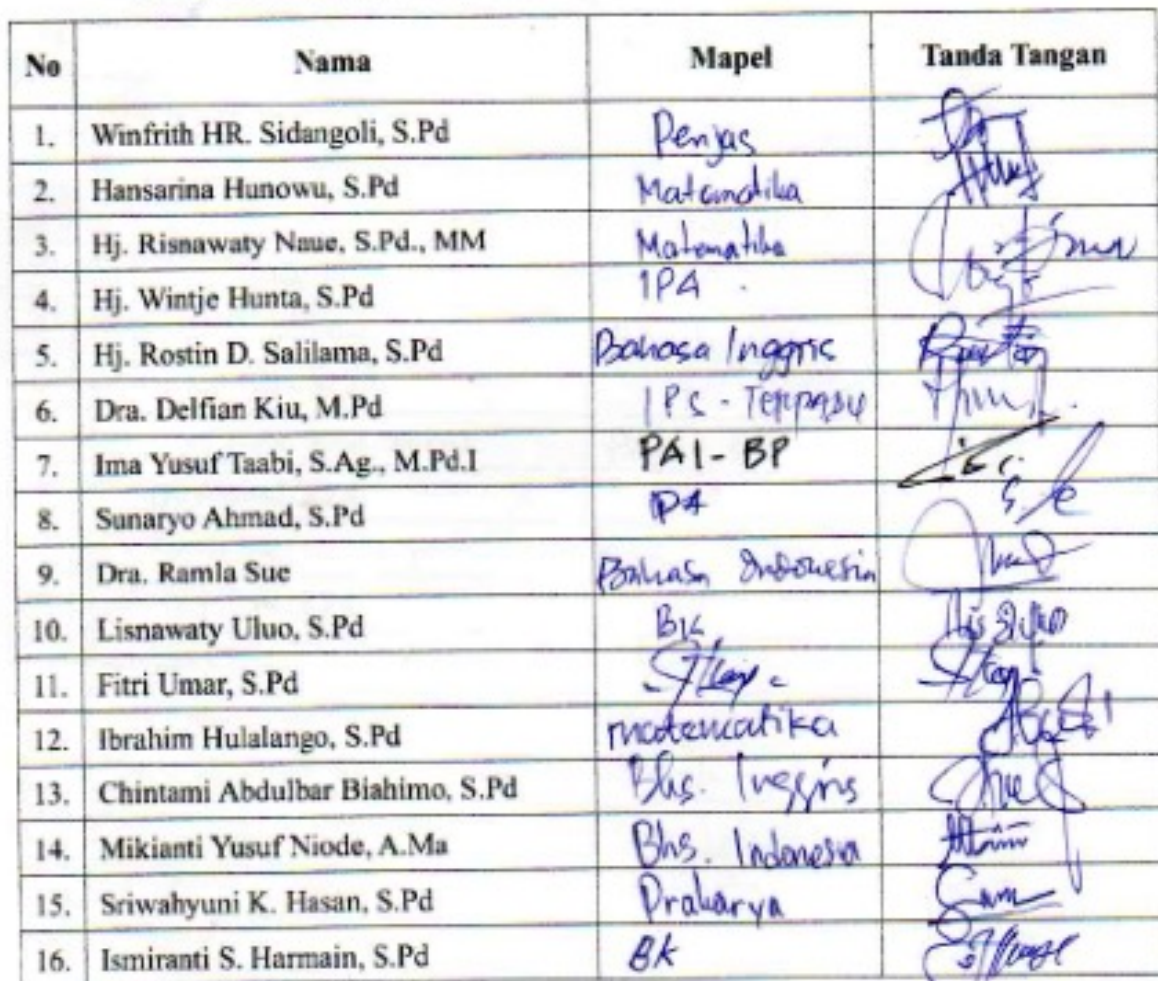 No Nama Mapel Tanda Tangan
1. Winfrith HR. Sidangoli, S.Pd Penjas
2. Hansarina Hunowu, S.Pd Matematika
3. Hj. Risnawaty Naue, S.Pd., MM Matematika
4. Hj. Wintje Hunta, S.Pd IPA
5. Hj. Rostin D. Salilama, S.Pd Bahasa Inggris
6. Dra. Delfian Kiu, M.Pd IPS - Terpadu
7. Ima Yusuf Taabi, S.Ag., M.Pd.I PAI - BP
8. Sunaryo Ahmad, S.Pd
9. Dra. Ramla Sue Bahasa Indonesia
10. Lisnawaty Uluo, S.Pd BK
11. Fitri Umar, S.Pd
12. Ibrahim Hulalango, S.Pd matematika
13. Chintami Abdulbar Biahimo, S.Pd Bhs. Inggris
14. Mikianti Yusuf Niode, A.Ma Bhs. Indonesia
15. Sriwahyuni K. Hasan, S.Pd Prakarya
16. Ismiranti S. Harmain, S.Pd BK